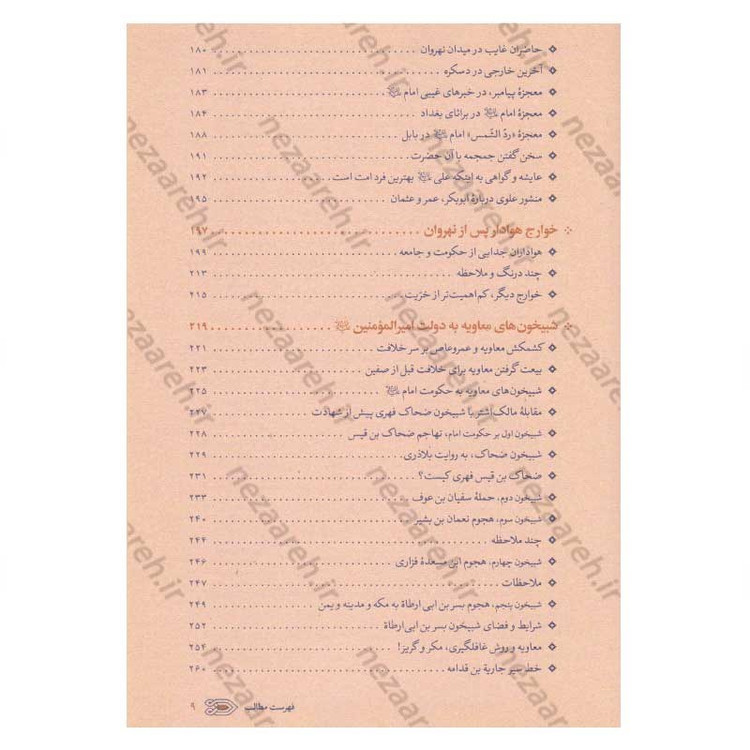 حاضران غایب در میدان نهروان ۱۸۰
آخرین خارجی در دسکره ۱۸۱
معجزهٔ پیامبر، در خبرهای غیبی امام ﷺ ۱۸۳
معجزهٔ امام ﷺ در براثای بغداد ۱۸۴
معجزهٔ «ردّ الشّمس» امام ﷺ در بابل ۱۸۸
سخن گفتن جمجمه با آن حضرت ۱۹۱
عایشه و گواهی به اینکه علی ﷺ بهترین فرد امت است ۱۹۲
منشور علوی دربارهٔ ابوبکر، عمر و عثمان ۱۹۵
خوارج هوادار پس از نهروان ۱۹۷
هواداران جدایی از حکومت و جامعه ۱۹۹
چند درنگ و ملاحظه ۲۱۳
خوارج دیگر، کم‌اهمیت‌تر از خرّیت ۲۱۵
شبیخون‌های معاویه به دولت امیرالمؤمنین ﷺ ۲۱۹
کشمکش معاویه و عمروعاص بر سر خلافت ۲۲۱
بیعت گرفتن معاویه برای خلافت قبل از صفین ۲۲۳
شبیخون‌های معاویه به حکومت امام ﷺ ۲۲۵
مقابلهٔ مالک‌اشتر با شبیخون ضحاک فهری پیش از شهادت ۲۲۷
شبیخون اول بر حکومت امام، تهاجم ضحاک بن قیس ۲۲۸
شبیخون ضحاک، به روایت بلاذری ۲۲۹
ضحاک بن قیس فهری کیست؟ ۲۳۱
شبیخون دوم، حملهٔ سفیان بن عوف ۲۳۳
شبیخون سوم، هجوم نعمان بن بشیر ۲۴۰
چند ملاحظه ۲۴۴
شبیخون چهارم، هجوم ابن مسعدهٔ فزاری ۲۴۶
ملاحظات ۲۴۷
شبیخون پنجم، هجوم بسر بن ابی ارطاة به مکه و مدینه و یمن ۲۴۹
شرایط و فضای شبیخون بسر بن ابی ارطاة ۲۵۲
معاویه و روش غافلگیری، مکر و گریز! ۲۵۴
خط سیر جاریة بن قدامه ۲۶۰
فهرست مطالب ۹
nezaareh.ir